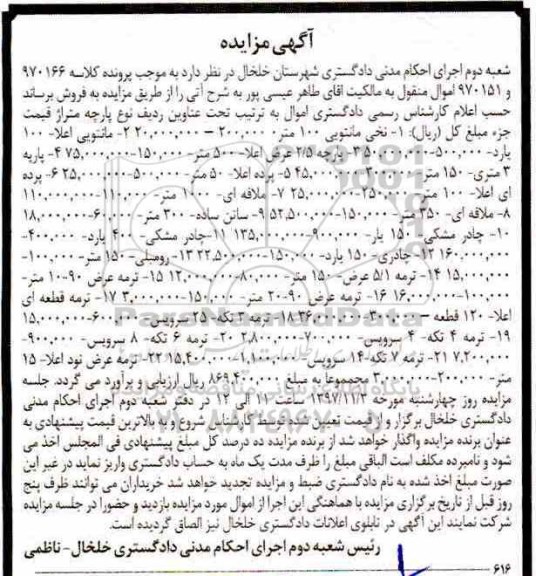 آگهی مزایده
شعبه دوم اجرای احکام مدنی دادگستری شهرستان خلخال در نظر دارد به موجب پرونده کلاسه ۹۷۰۱۶۶
و ۹۷۰۱۵۱ اموال منقول به مالکیت اقای طاهر عیسی پور به شرح آتی را از طریق مزایده به فروش برساند
حسب اعلام کارشناس رسمی دادگستری اموال به ترتیب تحت عناوین ردیف نوع پارچه متراژ قیمت
جزء مبلغ کل (ریال): ۱- نخی مانتویی ۱۰۰ متر- ۲۰۰,۰۰۰ – ۲۰,۰۰۰,۰۰۰ ۲- مانتویی اعلا- ۱۰۰
یارد- ۵۰۰,۰۰۰- ۵۰,۰۰۰,۰۰۰ ۳- پارچه ۲/۵ عرض اعلا- ۵۰۰ متر- ۱۵۰,۰۰۰- ۷۵,۰۰۰,۰۰۰ ۴- پارچه
۳ متری- ۱۵۰ متر- ۳۰۰,۰۰۰- ۴۵,۰۰۰,۰۰۰ ۵- پرده اعلا- ۵۰ متر- ۵۰۰,۰۰۰- ۲۵,۰۰۰,۰۰۰ ۶- پرده
ای اعلا- ۱۰۰ متر- ۲۵۰,۰۰۰- ۲۵,۰۰۰,۰۰۰ ۷- ملافه ای- ۱۰۰۰ متر- ۱۱۰,۰۰۰- ۱۱۰,۰۰۰,۰۰۰
۸- ملافه ای- ۳۵۰ متر- ۱۵۰,۰۰۰- ۵۲,۵۰۰,۰۰۰ ۹- ساتن ساده- ۳۰۰ متر- ۶۰,۰۰۰- ۱۸,۰۰۰,۰۰۰
۱۰- چادر مشکی- ۱۵۰ یار- ۹۰۰,۰۰۰- ۱۳۵,۰۰۰,۰۰۰ ۱۱-چادر مشکی- ۴۰۰ یارد- ۴۰۰,۰۰۰-
۱۶۰,۰۰۰,۰۰۰ ۱۲-چادری- ۱۵۰ یارد- ۱۵۰,۰۰۰- ۲۲,۵۰۰,۰۰۰ ۱۳- رومبلی- ۱۵۰ متر- ۱۰۰,۰۰۰-
۱۵,۰۰۰,۰۰۰ ۱۴- ترمه ۵/۱ عرض- ۱۵۰ متر- ۸۰,۰۰۰- ۱۲,۰۰۰,۰۰۰ ۱۵- ترمه عرض ۹۰-۱۰ متر-
۱۰۰,۰۰۰- ۱۶,۰۰۰,۰۰۰ ۱۶- ترمه عرض ۹۰-۲۰ متر- ۱۵۰,۰۰۰- ۳,۰۰۰,۰۰۰ ۱۷- ترمه قطعه ای
اعلا- ۱۲۰ قطعه – ۳۰۰,۰۰۰- ۳۶,۰۰۰,۰۰۰ ۱۸- ترمه ۳ تکه- ۲۵ سرویس- ۶۰۰,۰۰۰- ۱۵,۰۰۰,۰۰۰
۱۹- ترمه ۴ تکه- ۴ سرویس- ۷۰۰,۰۰۰- ۲,۸۰۰,۰۰۰ ۲۰- ترمه ۶ تکه- ۸ سرویس- ۹۰۰,۰۰۰-
۷,۲۰۰,۰۰۰ ۲۱- ترمه ۷ تکه-۱۴ سرویس- ۱,۱۰۰,۰۰۰- ۱۵,۴۰۰,۰۰۰ ۲۲- ترمه عرض نود اعلا- ۱۵
متر- ۲۰۰,۰۰۰- ۳,۰۰۰,۰۰۰ مجموعا به مبلغ ۸۶۹,۴۰۰,۰۰۰ ریال ارزیابی و برآورد می گردد. جلسه
مزایده روز چهارشنبه مورخه ۱۳۹۷/۱۱/۳ ساعت ۱۱ الی ۱۲ در دفتر شعبه دوم اجرای احکام مدنی
دادگستری خلخال برگزار و از قیمت تعیین شده توسط کارشناس شروع و با بالاترین قیمت پیشنهادی به
عنوان برنده مزایده واگذار خواهد شد از برنده مزایده ده درصد کل مبلغ پیشنهادی فی المجلس اخذ می
شود و نامبرده مکلف است الباقی مبلغ را ظرف مدت یک ماه به حساب دادگستری واریز نماید در غیر این
صورت مبلغ اخذ شده به نام دادگستری ضبط و مزایده تجدید خواهد شد خریداران می توانند ظرف پنج
روز قبل از تاریخ برگزاری مزایده با هماهنگی این اجرا از اموال مورد مزایده بازدید و حضورا در جلسه مزایده
شرکت نمایند این آگهی در تابلوی اعلانات دادگستری خلخال نیز الصاق گردیده است.
رئیس شعبه دوم اجرای احکام مدنی دادگستری خلخال- ناظمی
۶۱۶